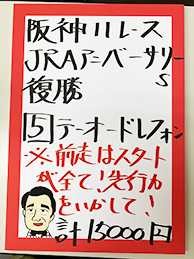 阪神11レース
JRAアニバーサリーS
複勝
5 テーオードレフォン
※前走はスタート
が全て!先行力
をいかして!
計15000円